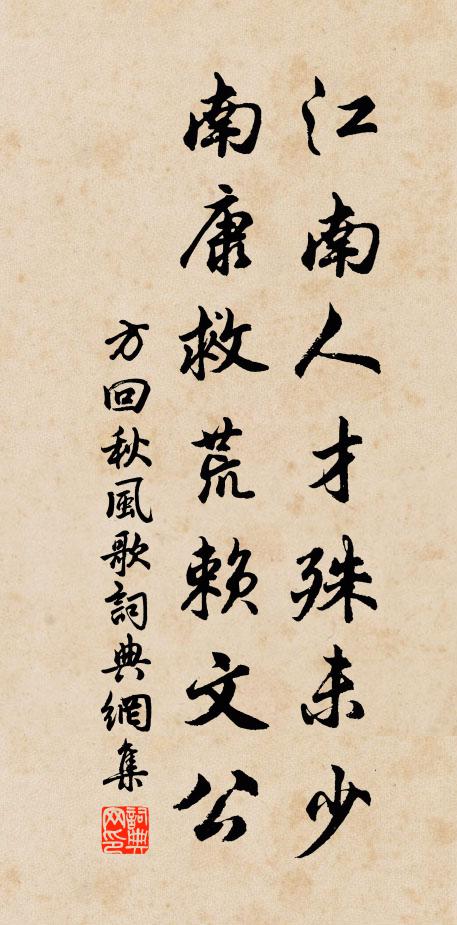 江南人才殊未少
南康救荒賴文公
方回秋風歌詞典網集
詞典網印